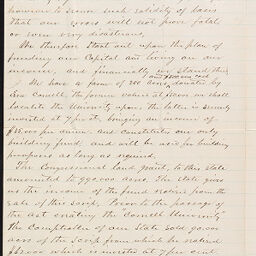 however to secure such solidity of basis
that our errors will not prove fatal
or even very disastrous.
We therefore start out upon the plan of
funding our Capital and living on our
income, and financially we stand thus
We have a farm of 200 acres, donated by
Ezra Cornell, the former value at $
locate the University upon. The latter is securely
invested at 7 pr ct. bringing an income of
per annum. And constitutes our only
building fund. and will be used for building
purposes as long as required.
The Congressional land grant, to this state
amounted to 990,000 acres. The State gives
us the income of the fund realized from the
sale of this scrip. Prior to the passage of
the act creating the Cornell University
the Comptroller of our State sold
acres of the Scrip from which he realized
which is invested at 7 per cent.